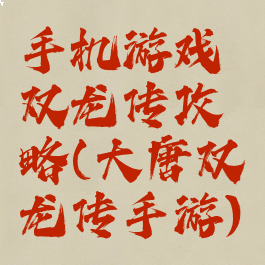 手机游戏
双龙传攻
略(大唐双
龙传手游)